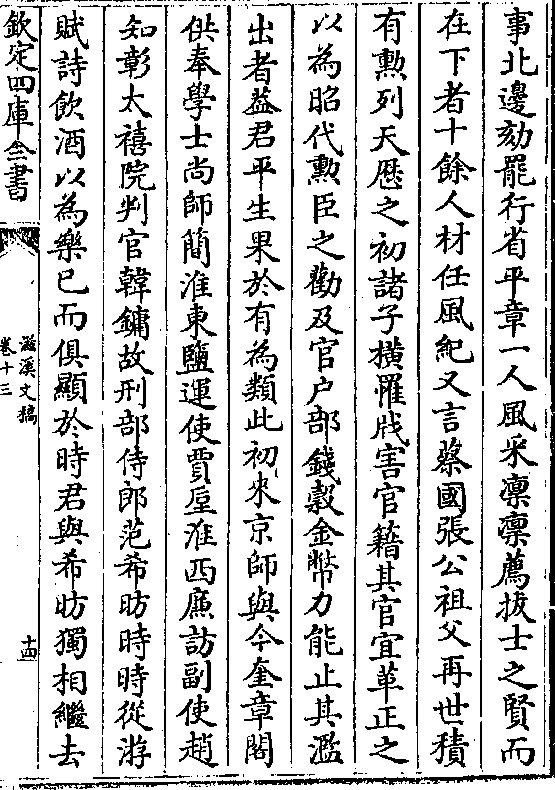 事北邊劾罷行省平章一人風采凛凛薦拔士之賢而
在下者十餘人材任風紀又言蔡國張公祖父再世積
有勲列天厯之初諸子横罹戕害官籍其官宜革正之
以為昭代勲臣之勸及官户部錢榖金幣力能止其濫
出者葢君平生果於有為類此初來京師與今奎章閣
供奉學士尚師簡淮東鹽運使賈垕淮西亷訪副使趙
知彰太禧院判官韓鏞故刑部侍郎范希昉時時從游
賦詩飲酒以為樂已而俱顯於時君與希昉獨相繼去
欽定四庫全書
滋溪文稿
卷十三
十四